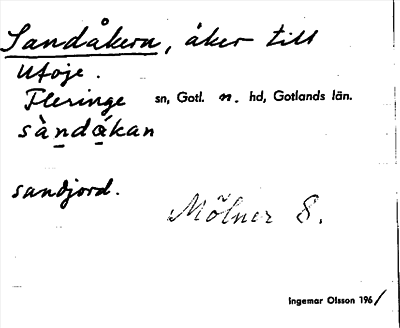 Sandåkern, åker till
Utoje.
Fleringe sn, Gotl. n. hd, Gotlands län.
sàndá̊kan
sandjord.
Mölner 8.
Ingemar Olsson 1961